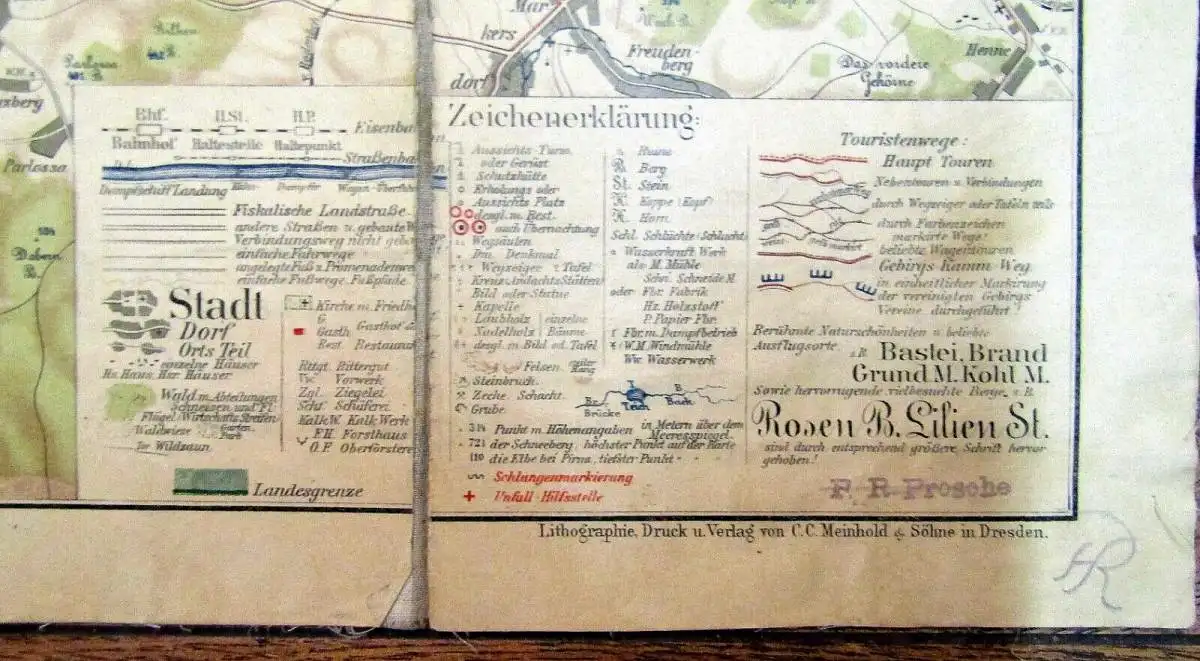 Mar
kers
dorf
Freuden-
berg
Das vordere
Gehörne
Henne
Parlosa
Parlossa
Zeichenerklärung:
Bhf.
H.St.
H.P.
Eisenba
Bahnhof
Haltestelle
Haltepunkt
Straßenba
Dampfschiff Landung
Fiskalische Landstraße
andere Straßen u. gebaute W
Verbindungsweg nicht geba
einfache Fahrwege
angelegte Fuß u. Promenadenwe
einfache Fußwege. Fußpfade.
Stadt
Dorf
Orts Teil
einzelne Häuser
Hs. Haus, Hsr. Häuser
Wald m. Abteilungen
Schneisen und Fl
Flügel (Wirtschafts Streifen
Waldwiese
Garten.
Park
Wildzaun
Landesgrenze
Kirche m. Friedh
G.
Gasth.
Gasthof
Rest. Restaura
Rttgt. Rittergut
Vw. Vorwerk
Zgl. Ziegelei
Schf. Schäferei
Kalk W. Kalk Werk
F.H. Forsthaus
O.F. Oberförstere
Aussichts Turm
oder Gerüst
Schutzhütte
Erholungs oder
Aussichts Platz
desgl. m. Rest.
auch Übernachtung
Wegsäulen
Denkmal
Wegzeiger Tafel
Kreuz Andachts Stätten
Bild oder Statue
Kapelle
Laubholz einzelne
Nadelholz Bäume
desgl. m. Bild od. Tafel
Felsen
Steinbruch.
Zeche. Schacht.
Grube.
Ruine
B. Berg
St. Stein
K. Koppe (Kopf)
H. Horn
Schl. Schlüchte (Schlucht)
Wasserkraft Werk
als M. Mühle
Schn. Schneide M.
oder Fbr. Fabrik
Hz. Holzstoff
P. Papier Fbr.
Fbr. m. Dampfbetrieb
W.M. Windmühle
Ww. Wasserwerk
Br.
Brücke
T.
Teich
B.
Bach
314 Punkt m. Höhenangaben in Metern über dem
Meeresspiegel.
721 der Schneeberg, höchster Punkt auf der Karte
110 die Elbe bei Pirna, tiefster Punkt
Schlangenmarkierung
Unfall-Hilfsstelle
Touristenwege:
Haupt Touren
Nebentouren u. Verbindungen
durch Wegzeiger oder Tafeln teils
durch Farbenzeichen
markirte Wege
beliebte Wagentouren
Gebirgs Kamm Weg
in einheitlicher Markirung
der vereinigten Gebirgs
Vereine durchgeführt!
Berühmte Naturschönheiten u. beliebte
Ausflugsorte z.B. Bastei, Brand
Grund M. Kohl M.
Sowie hervorragende vielbesuchte Berge, z.B.
Rosen B. Lilien St.
sind durch entsprechend größere Schrift hervor
gehoben!
F. R. Prosche
Lithographie, Druck u. Verlag von C.C. Meinhold & Söhne in Dresden.